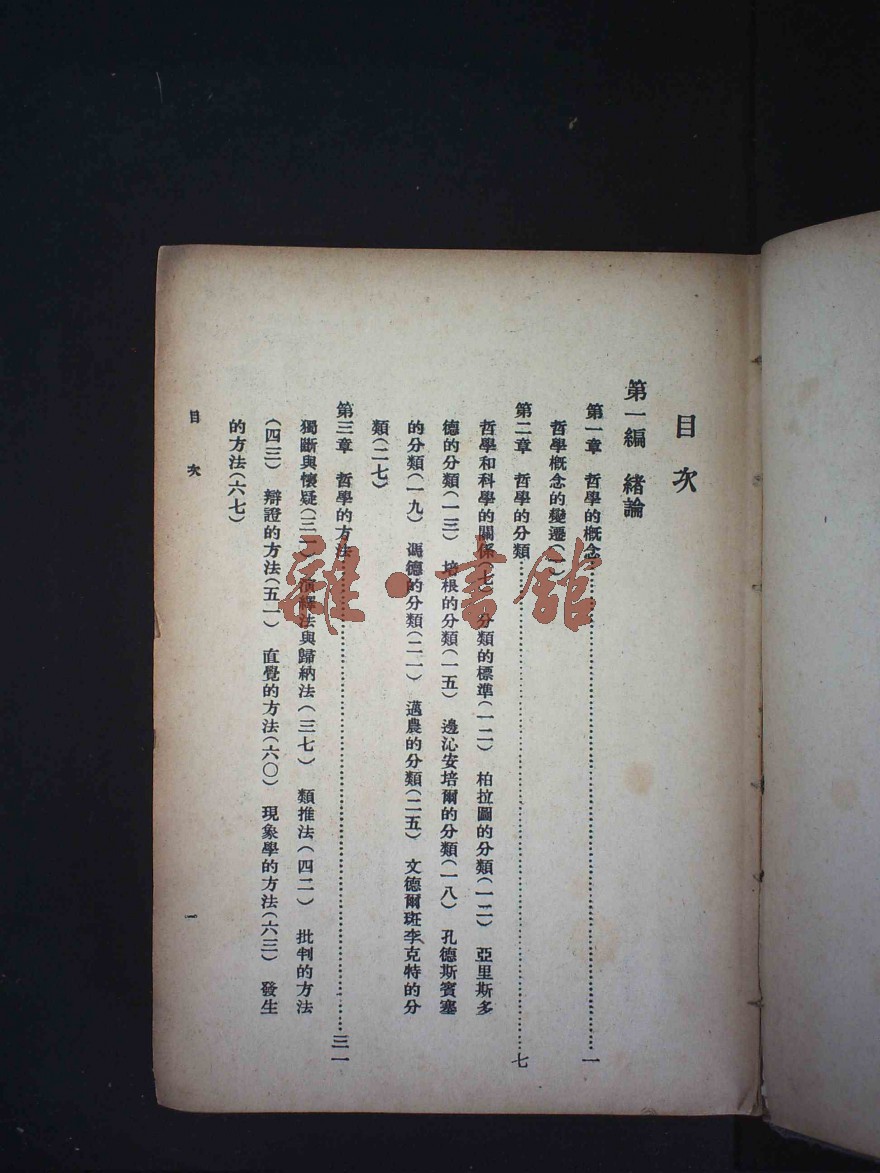 目次
第一編 緒論
第一章 哲學的概念……一
哲學概念的變遷(一)
第二章 哲學的分類……七
哲學和科學的關係(七) 分類的標準(一二) 柏拉圖的分類(一二) 亞里斯多
德的分類(一三) 培根的分類(一五) 邊沁安培爾的分類(一八) 孔德斯賓塞
的分類(一九) 馮德的分類(二一) 邁農的分類(二五) 文德爾斑李克特的分
類(二七)
第三章 哲學的方法……三一
獨斷與懷疑(三一) 演繹法與歸納法(三七) 類推法(四二) 批判的方法
(四三) 辯證的方法(五一) 直覺的方法(六〇) 現象學的方法(六三) 發生
的方法(六七)
目次
一
雜·書館